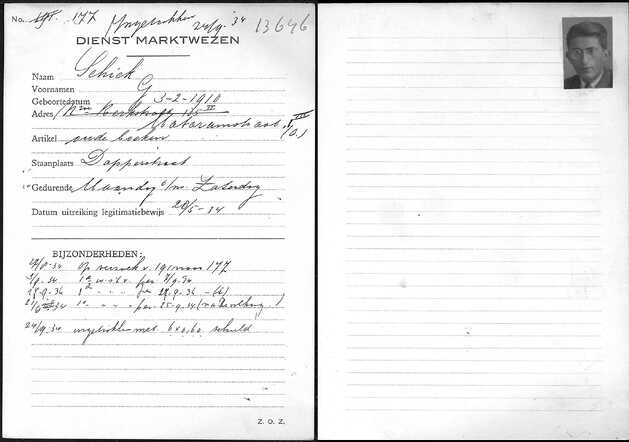 No. 191. 177 Ingetrokken 24/9. 34 13646
DIENST MARKTWEZEN
Naam Schiek
Voornamen G
Geboortedatum 3-2-1910
Adres Nwe Kerkstraat 115 II
Mataramstraat 8 III
Artikel oude boeken (O.)
Staanplaats Dapperstraat
Gedurende Maandag t/m Zaterdag
Datum uitreiking legitimatiebewijs 28/5-34
BIJZONDERHEDEN:
op verzoek v. 191 naar 177
9. 34 1e w.st.v. per 7/9.34
18.9.34 2e " " " per 18.9.34
34 1e " " " per 25-9.34
24/9.34 ingetrokken met 6 x 0,60 schuld
Z. O. Z.